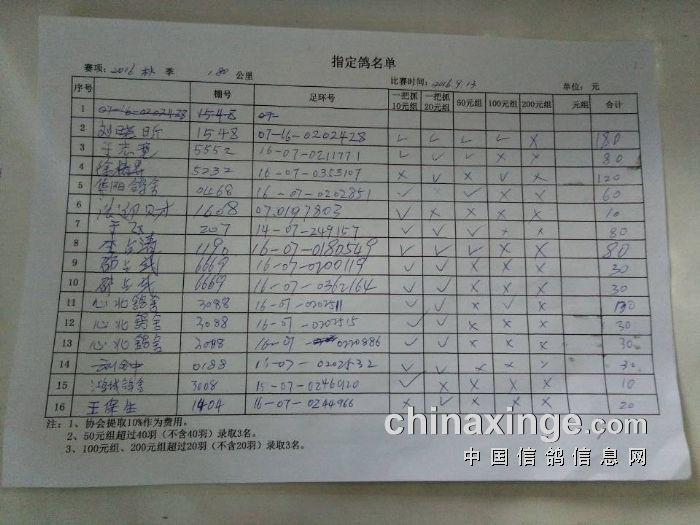 指定鸽名单
赛项：2016 秋 季 180 公里 比赛时间：2016.9.13 单位：元
序号 棚号 足环号 一把抓10元组 一把抓20元组 50元组 100元组 200元组 元组 合计
1 07-16-0202428 1548 07-
2 刘晓昕 1548 07-16-0202428 ✓ ✓ ✓ ✓ × 180
3 5552 16-07-0211771 ✓ ✓ ✓ × × 80
4 5232 16-07-0353107 × ✓ × ✓ × 120
5 鸽舍 01568 16-07-0202851 ✓ ✓ × × 60
6 1608 07.0197803 ✓ × × × × 10
7 207 14-07-249157 ✓ ✓ ✓ × × 80
8 李 1190 16-07-0180549 ✓ ✓ ✓ × × 80
9 6669 16-07-0200119 ✓ ✓ × × × 30
10 6669 16-07-0362164 ✓ ✓ × × × 30
11 心北鸽舍 3088 16-07- ✓ ✓ × ✓ ×
12 心北鸽舍 3088 16-07-0202515 ✓ ✓ × × × 30
13 心北鸽舍 3088 16-07-0220886 ✓ ✓ × × × 30
14 0188 16-07-0202532 ✓ ✓ × × × 30
15 鸽舍 3008 15-07-0246020 ✓ × × × × 10
16 王保生 1404 16-07-0244966 × ✓ × × × 20
注：1、协会提取10%作为费用。
2、50元组超过40羽（不含40羽）录取3名。
3、100元组、200元组超过20羽（不含20羽）录取3名。
chinaxinge.com
中国信鸽信息网